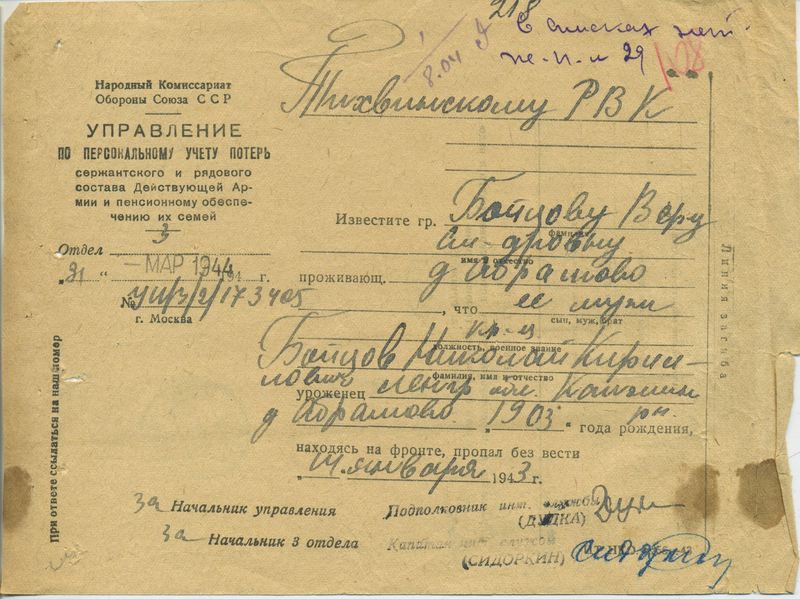 218
В списках нет
8.04
Народный Комиссариат
Обороны Союза ССР
УПРАВЛЕНИЕ
ПО ПЕРСОНАЛЬНОМУ УЧЕТУ ПОТЕРЬ
сержантского и рядового
состава Действующей Ар-
мии и пенсионному обеспе-
чению их семей
3
Отдел
„31 “ – МАР 1944 194 г.
№ уп/3/2/173405
г. Москва
При ответе ссылаться на наш номер
Тихвинскому РВК
Известите гр. Бойцову Веру
фамилия
Ал-дровну
имя и отчество
проживающ. д
, что ее муж
сын, муж, брат
кр-ц
должность, военное звание
Бойцов Николай Кирил-
лович
фамилия, имя и отчество
уроженец Ленгр обл. Капшин
рн.
д 1903 года рождения,
находясь на фронте, пропал без вести
14 января 1943 г.
Линия загиба
За Начальник управления Подполковник инт. службы
(ДУДКА)
За Начальник 3 отдела Капитан инт. службы
(СИДОРКИН)